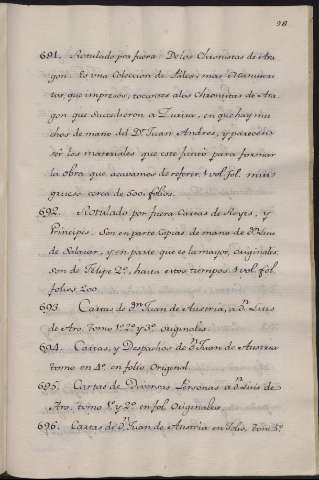 98
691. Rotulado por fuera: De los Chronistas de Ara
gon. Es una Coleccion de Pâles, mas Manuscri-
tos, que impresos, tocantes alos Chronistas de Ara
gon que sucedieron a Zurita, en que hay mu
chos de mano del Dr. Juan Andres, y parece
ser los materiales que este juntó para formar
la obra que acavamos de referir. 1 vol. fol. mui
grueso cerca de 500. folios.
692. Rotulado por fuera Cartas de Reyes, y
Principes. Son en parte Copias de mano de Dn. Luis
de Salazar, y en parte que es la mayor, originales.
Son de Felipe 2º. hasta estos tiempos. 1 vol. fol.
folios 200.
693. Cartas de Dn. Juan de Austria, a Dn. Luis
de Aro. tomo 1º. 2º. y 3º. Originales.
694. Cartas, y Despachos de Dn. Juan de Austria
tomo en 4º. en folio Original.
695. Cartas de Diversas Personas a Dn. Luis de
Aro. tomo 1º. y 2º. en fol. Originales.
696. Cartas de Dn. Juan de Austria en folio, tom. 1º.